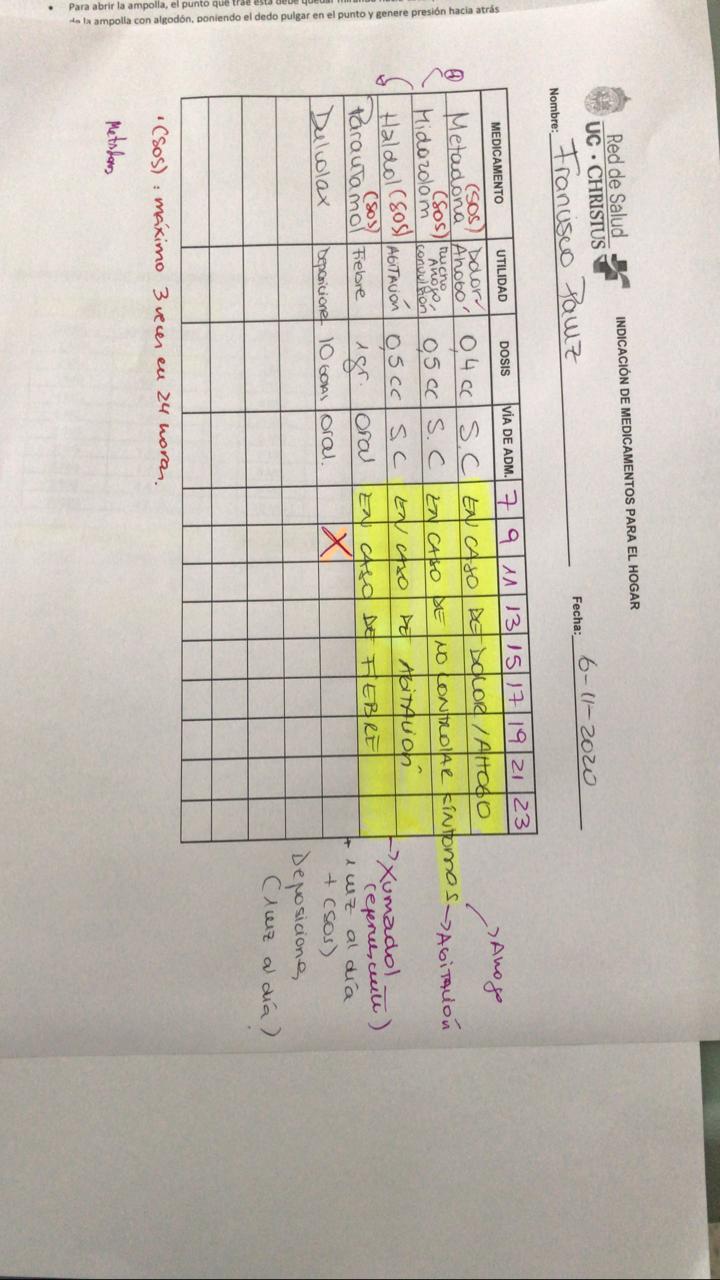 • Para abrir la ampolla, el punto que trae esta debe quedar
de la ampolla con algodón, poniendo el dedo pulgar en el punto y genere presión hacia atrás
Red de Salud
UC • CHRISTUS
INDICACIÓN DE MEDICAMENTOS PARA EL HOGAR
Nombre: Francisco
Fecha: 6-11-2020
MEDICAMENTO UTILIDAD DOSIS VÍA DE ADM. 7 9 11 13 15 17 19 21 23
Metadona (SOS) Dolor, Ahogo 0,4 cc S.C EN CASO DE DOLOR / AHOGO → Ahogo
Midozolam (SOS) Mucho Ahogo, 0,5 cc S.C EN CASO DE NO CONTROLAR SÍNTOMAS → AGITACIÓN
Haldol (SOS) AGITACIÓN 0,5 cc S.C EN CASO DE AGITACIÓN
Paracetamol (SOS) Fiebre 1 gr. oral EN CASO DE FIEBRE → Xumadol
Dulcolax Deposiciones 10 oral. X
+ 1 vez al día
+ (SOS)
Deposiciones
(1 vez al día)
• (SOS) : máximo 3 veces en 24 horas.